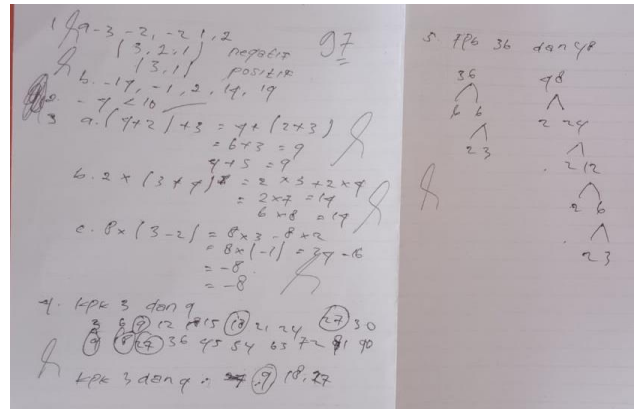 1. a -3 -2, -2 1, 2
{3, 2, 1} negatif
{3, 1} positif
97
b. -14, -1, 2, 14, 19
2. -7 < 10
3 a. (4+2)+3 = 4+(2+3)
= 6+3 = 9
4+5 = 9
b. 2 × (3+4) = 2 × 3 + 2 × 4
= 2×7 = 14
6×8 = 14
c. 8×(3-2) = 8×3 - 8×2
= 8×(-1) = 24 - 16
= -8
= -8
4. KPK 3 dan 9
3 6 9 12 15 18 21 24 27 30
9 18 27 36 45 54 63 72 81 90
KPK 3 dan 9 : 9 18, 27
5. FPB 36 dan 48
36 48
6 6 2 24
2 3 2 12
2 6
2 3